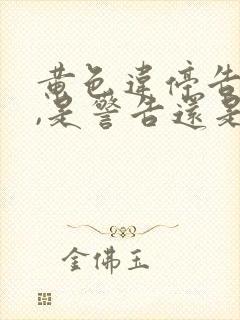 黄色違停告
,是警告還是
金佛玉